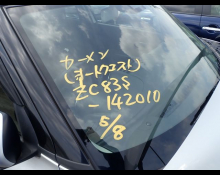 カーメン
(オートクエスト)
ZC83S
-142010
5/8